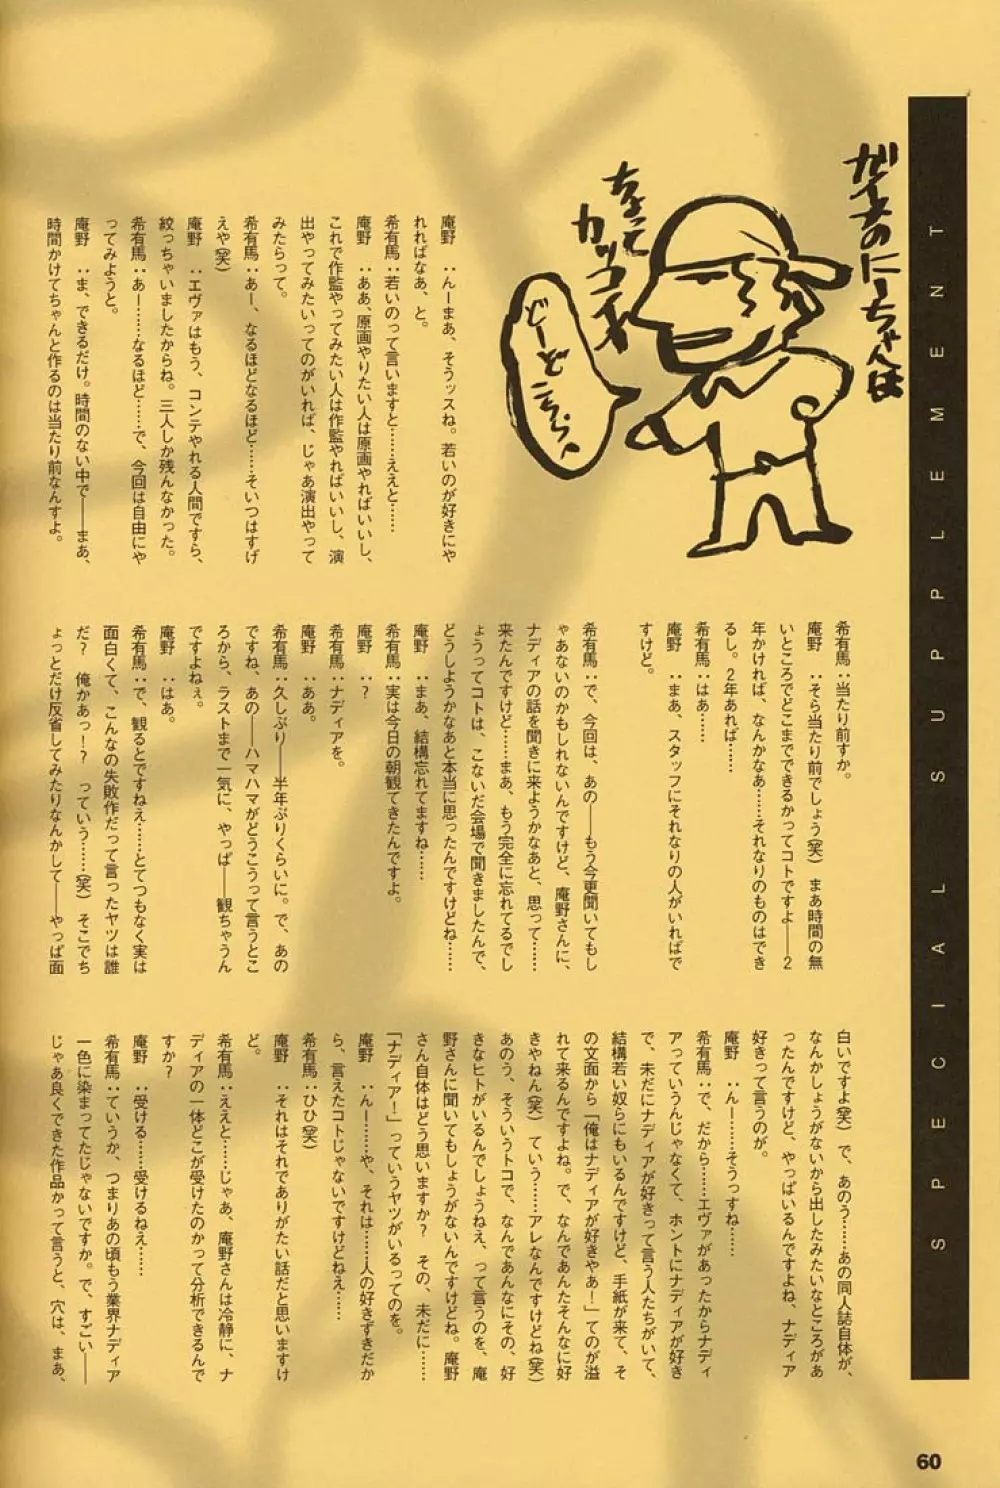 SPECIAL SUPPLEMENT
ガイナのにーちゃんは
なってカッコイイ
どーどころう、
庵野　：んーまあ、そうッスね。若いのが好きにや
れればなあ、と。
希有馬：若いのって言いますと……ええと……
庵野　：ああ、原画やりたい人は原画やればいいし、
これで作監やってみたい人は作監やればいいし、演
出やってみたいってのがいれば、じゃあ演出やって
みたらって。
希有馬：あー、なるほどなるほど……そいつはすげ
えや（笑）
庵野　：エヴァはもう、コンテやれる人間ですら、
絞っちゃいましたからね。三人しか残んなかった。
希有馬：あー……なるほど……で、今回は自由にや
ってみようと。
庵野　：ま、できるだけ。時間のない中で——まあ、
時間かけてちゃんと作るのは当たり前なんすよ。
希有馬：当たり前すか。
庵野　：そら当たり前でしょう（笑）　まあ時間の無
いところでどこまでできるかってコトですよ——2
年かければ、なんかなあ……それなりのものはでき
るし。2年あれば……
希有馬：はあ……
庵野　：まあ、スタッフにそれなりの人がいればで
すけど。
希有馬：で、今回は、あの——もう今更聞いてもし
ゃあないのかもしれないんですけど、庵野さんに、
ナディアの話を聞きに来ようかなあと、思って……
来たんですけど……まあ、もう完全に忘れてるでし
ょうってコトは、こないだ会場で聞きましたんで、
どうしようかなあと本当に思ったんですけどね……
庵野　：まあ、結構忘れてますね……
希有馬：実は今日の朝観てきたんですよ。
庵野　：？
希有馬：ナディアを。
庵野　：ああ。
希有馬：久しぶり——半年ぶりくらいに。で、あの
ですね、あの——ハマハマがどうこうって言うとこ
ろから、ラストまで一気に、やっぱ——観ちゃうん
ですよねぇ。
庵野　：はあ。
希有馬：で、観るとですねえ……とてつもなく実は
面白くて、こんなの失敗作だって言ったヤツは誰
だ？　俺かあっ！？　っていう……（笑）　そこでち
ょっとだけ反省してみたりなんかして——やっぱ面
白いですよ（笑）　で、あのう……あの同人誌自体が、
なんかしょうがないから出したみたいなところがあ
ったんですけど、やっぱいるんですよね、ナディア
好きって言うのが。
庵野　：んー……そうっすね……
希有馬：で、だから……エヴァがあったからナディ
アっていうんじゃなくて、ホントにナディアが好き
で、未だにナディアが好きって言う人たちがいて、
結構若い奴らにもいるんですけど、手紙が来て、そ
の文面から「俺はナディアが好きやあ！」てのが溢
れて来るんですよね。で、なんであんたそんなに好
きやねん（笑）　ていう……アレなんですけどね（笑）
あのう、そういうトコで、なんであんなにその、好
きなヒトがいるんでしょうねえ、って言うのを、庵
野さんに聞いてもしょうがないんですけどね。庵野
さん自体はどう思いますか？　その、未だに……
「ナディア！」っていうヤツがいるってのを。
庵野　：んー……や、それは……人の好きずきだか
ら、言えたコトじゃないですけどねえ……
希有馬：ひひ（笑）
庵野　：それはそれでありがたい話だと思いますけ
ど。
希有馬：ええと……じゃあ、庵野さんは冷静に、ナ
ディアの一体どこが受けたのかって分析できるんで
すか？
庵野　：受ける……受けるねえ……
希有馬：ていうか、つまりあの頃もう業界ナディア
一色に染まってたじゃないですか。で、すごい——
じゃあ良くできた作品かって言うと、穴は、まあ、
60